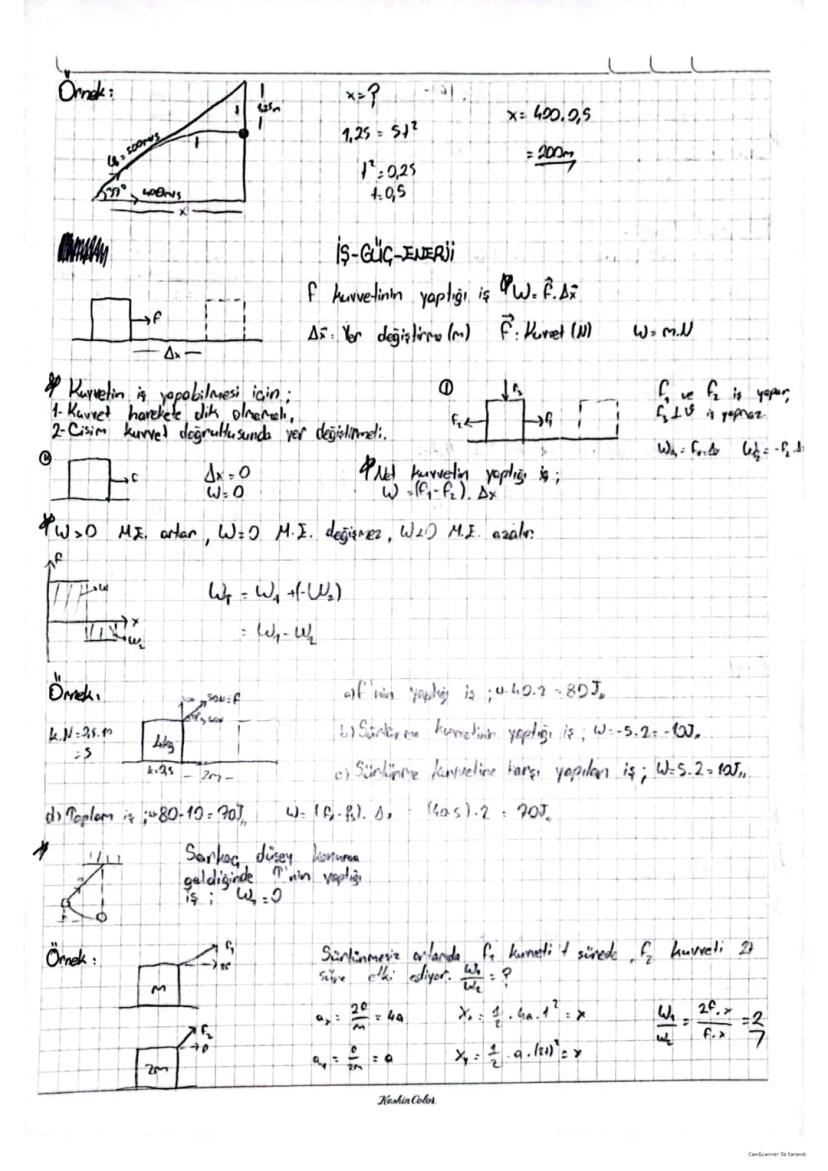 Örnek:
1,25m
V₀=500m/s
37°
400m/s
x
x=?
1,25 = 5t²
t²=0,25
t=0,5
x= 400.0,5
= 200m
İŞ-GÜÇ-ENERJİ
F
Δx
F kuvvetinin yaptığı iş W= F.Δx
Δx: Yer değiştirme (m) F: Kuvvet (N) W= m.N
Kuvvetin iş yapabilmesi için;
1- Kuvvet harekete dik olmamalı,
2- Cisim kuvvet doğrultusunda yer değiştirmeli.
① F₃
F₂ F₁
F₁ ve F₂ iş yapar,
F₃⊥V iş yapmaz
②
Δx=0
W=0
Net kuvvetin yaptığı iş;
W=(F₁-F₂). Δx
W>0 M.E. artar, W=0 M.E. değişmez, W<0 M.E. azalır
F
W
x
W₂
W_T = W₁ +(-W₂)
= W₁-W₂
Örnek:
50N=F
4kg
2m
= 5
a) F'nin yaptığı iş ; 40.2 = 80J
b) Sürtünme kuvvetinin yaptığı iş; W=-5.2=-10J
c) Sürtünme kuvvetine karşı yapılan iş; W=5.2=10J
d) Toplam iş ; 80-10=70J 2 = 70J
Sarkaç düşey konuma
geldiğinde T'nin yaptığı
iş; =0
Örnek:
F₁
2F
m
F₂
F
2m
Sürtünmesiz ortamda F₁ kuvveti t sürede, F₂ kuvveti 2t
süre etki ediyor. W₁/W₂ = ?
= 2F/m = 4a
= F/2m = a
= 1/2 . 4a.t² = x
= 1/2 .a.(2t)² = x
W₁/W₂ = 2F.x/F.x = 2
KeskinColor
CamScanner ile tarandı